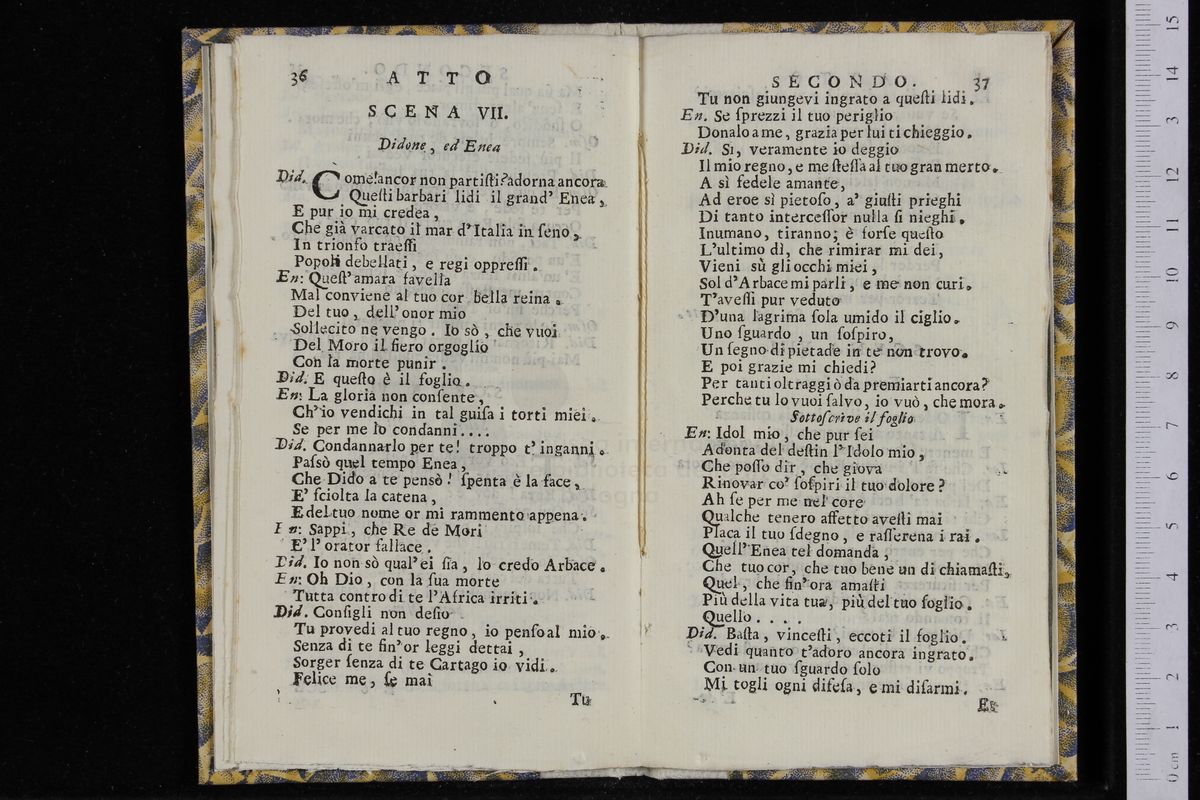 36 ATTO
SCENA VII.
Didone, ed Enea
Did. Come! ancor non partiſti? adorna ancora
Queſti barbari lidi il grand' Enea,
E pur io mi credea,
Che già varcato il mar d'Italia in ſeno,
In trionfo traeſſi
Popoli debellati, e regi oppreſſi.
En: Queſt'amara favella
Mal conviene al tuo cor bella reina.
Del tuo, dell'onor mio
Sollecito ne vengo. Io sò, che vuoi
Del Moro il fiero orgoglio
Con la morte punir.
Did. E queſto è il foglio.
En: La gloria non conſente,
Ch'io vendichi in tal guiſa i torti miei.
Se per me lo condanni....
Did. Condannarlo per te! troppo t'inganni.
Paſsò quel tempo Enea,
Che Dido a te pensò! ſpenta è la face,
E' ſciolta la catena,
E del tuo nome or mi rammento appena.
En: Sappi, che Re de Mori
E'l'orator fallace.
Did. Io non sò qual'ei ſia, lo credo Arbace.
En: Oh Dio, con la ſua morte
Tutta contro di te l'Africa irriti.
Did. Conſigli non deſio
Tu provedi al tuo regno, io penſo al mio.
Senza di te fin'or leggi dettai,
Sorger ſenza di te Cartago io vidi.
Felice me, ſe mai
Tu
SECONDO. 37
Tu non giungevi ingrato a queſti lidi.
En. Se ſprezzi il tuo periglio
Donalo a me, grazia per lui ti chieggio.
Did. Sì, veramente io deggio
Il mio regno, e me ſteſſa al tuo gran merto.
A sì fedele amante,
Ad eroe sì pietoſo, a' giuſti prieghi
Di tanto interceſſor nulla ſi nieghi.
Inumano, tiranno; è forſe queſto
L'ultimo dì, che rimirar mi dei,
Vieni sù gli occhi miei,
Sol d'Arbace mi parli, e me non curi.
T'aveſſi pur veduto
D'una lagrima ſola umido il ciglio.
Uno ſguardo, un ſoſpiro,
Un ſegno di pietade in te non trovo.
E poi grazie mi chiedi?
Per tanti oltraggi ò da premiarti ancora?
Perche tu lo vuoi ſalvo, io vuò, che mora.
Sottoſcrive il foglio
En: Idol mio, che pur ſei
Adonta del deſtin l'Idolo mio,
Che poſſo dir, che giova
Rinovar co' ſoſpiri il tuo dolore?
Ah ſe per me nel core
Qualche tenero affetto aveſti mai
Placa il tuo ſdegno, e raſſerena i rai.
Quell'Enea tel domanda,
Che tuo cor, che tuo bene un di chiamaſti,
Quel, che fin'ora amaſti
Più della vita tua, più del tuo foglio.
Quello....
Did. Baſta, vinceſti, eccoti il foglio.
Vedi quanto t'adoro ancora ingrato.
Con un tuo ſguardo ſolo
Mi togli ogni difeſa, e mi diſarmi.
Et